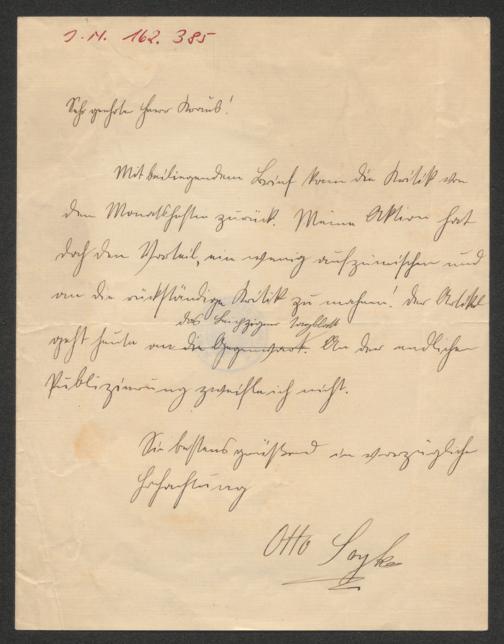 I. N. 162.385
Sehr geehrter Herr Kraus!
Mit beiliegendem Brief kam die Kritik von
den Monatsheften zurück. Meine Aktion hat
doch den Vorteil, ein wenig aufzumischen und
an die rückständige Kritik zu mahnen! Der Artikel
das Leipziger Tagblatt
geht heute an die Gegenwart. An der endlichen
Publizierung zweifle ich nicht.
Sie bestens grüßend in vorzüglicher
Hochachtung
Otto Soyka